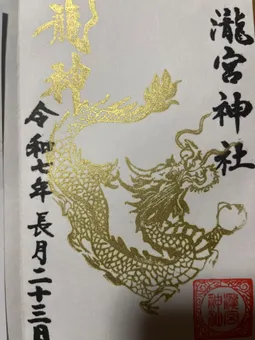 瀧宮神社
龍神
令和七年長月二十三日
瀧宮
神社